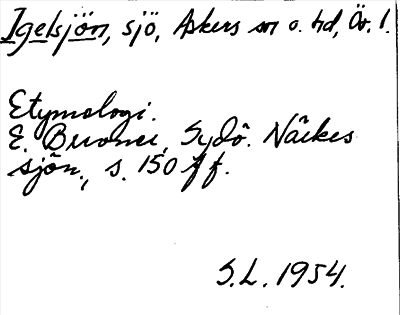 Igelsjön, sjö, Askers sn o. hd, Ör. l.
Etymologi.
E. Brevner, Sydö. Närkes
sjön., s. 150 ff.
S.L. 1954.